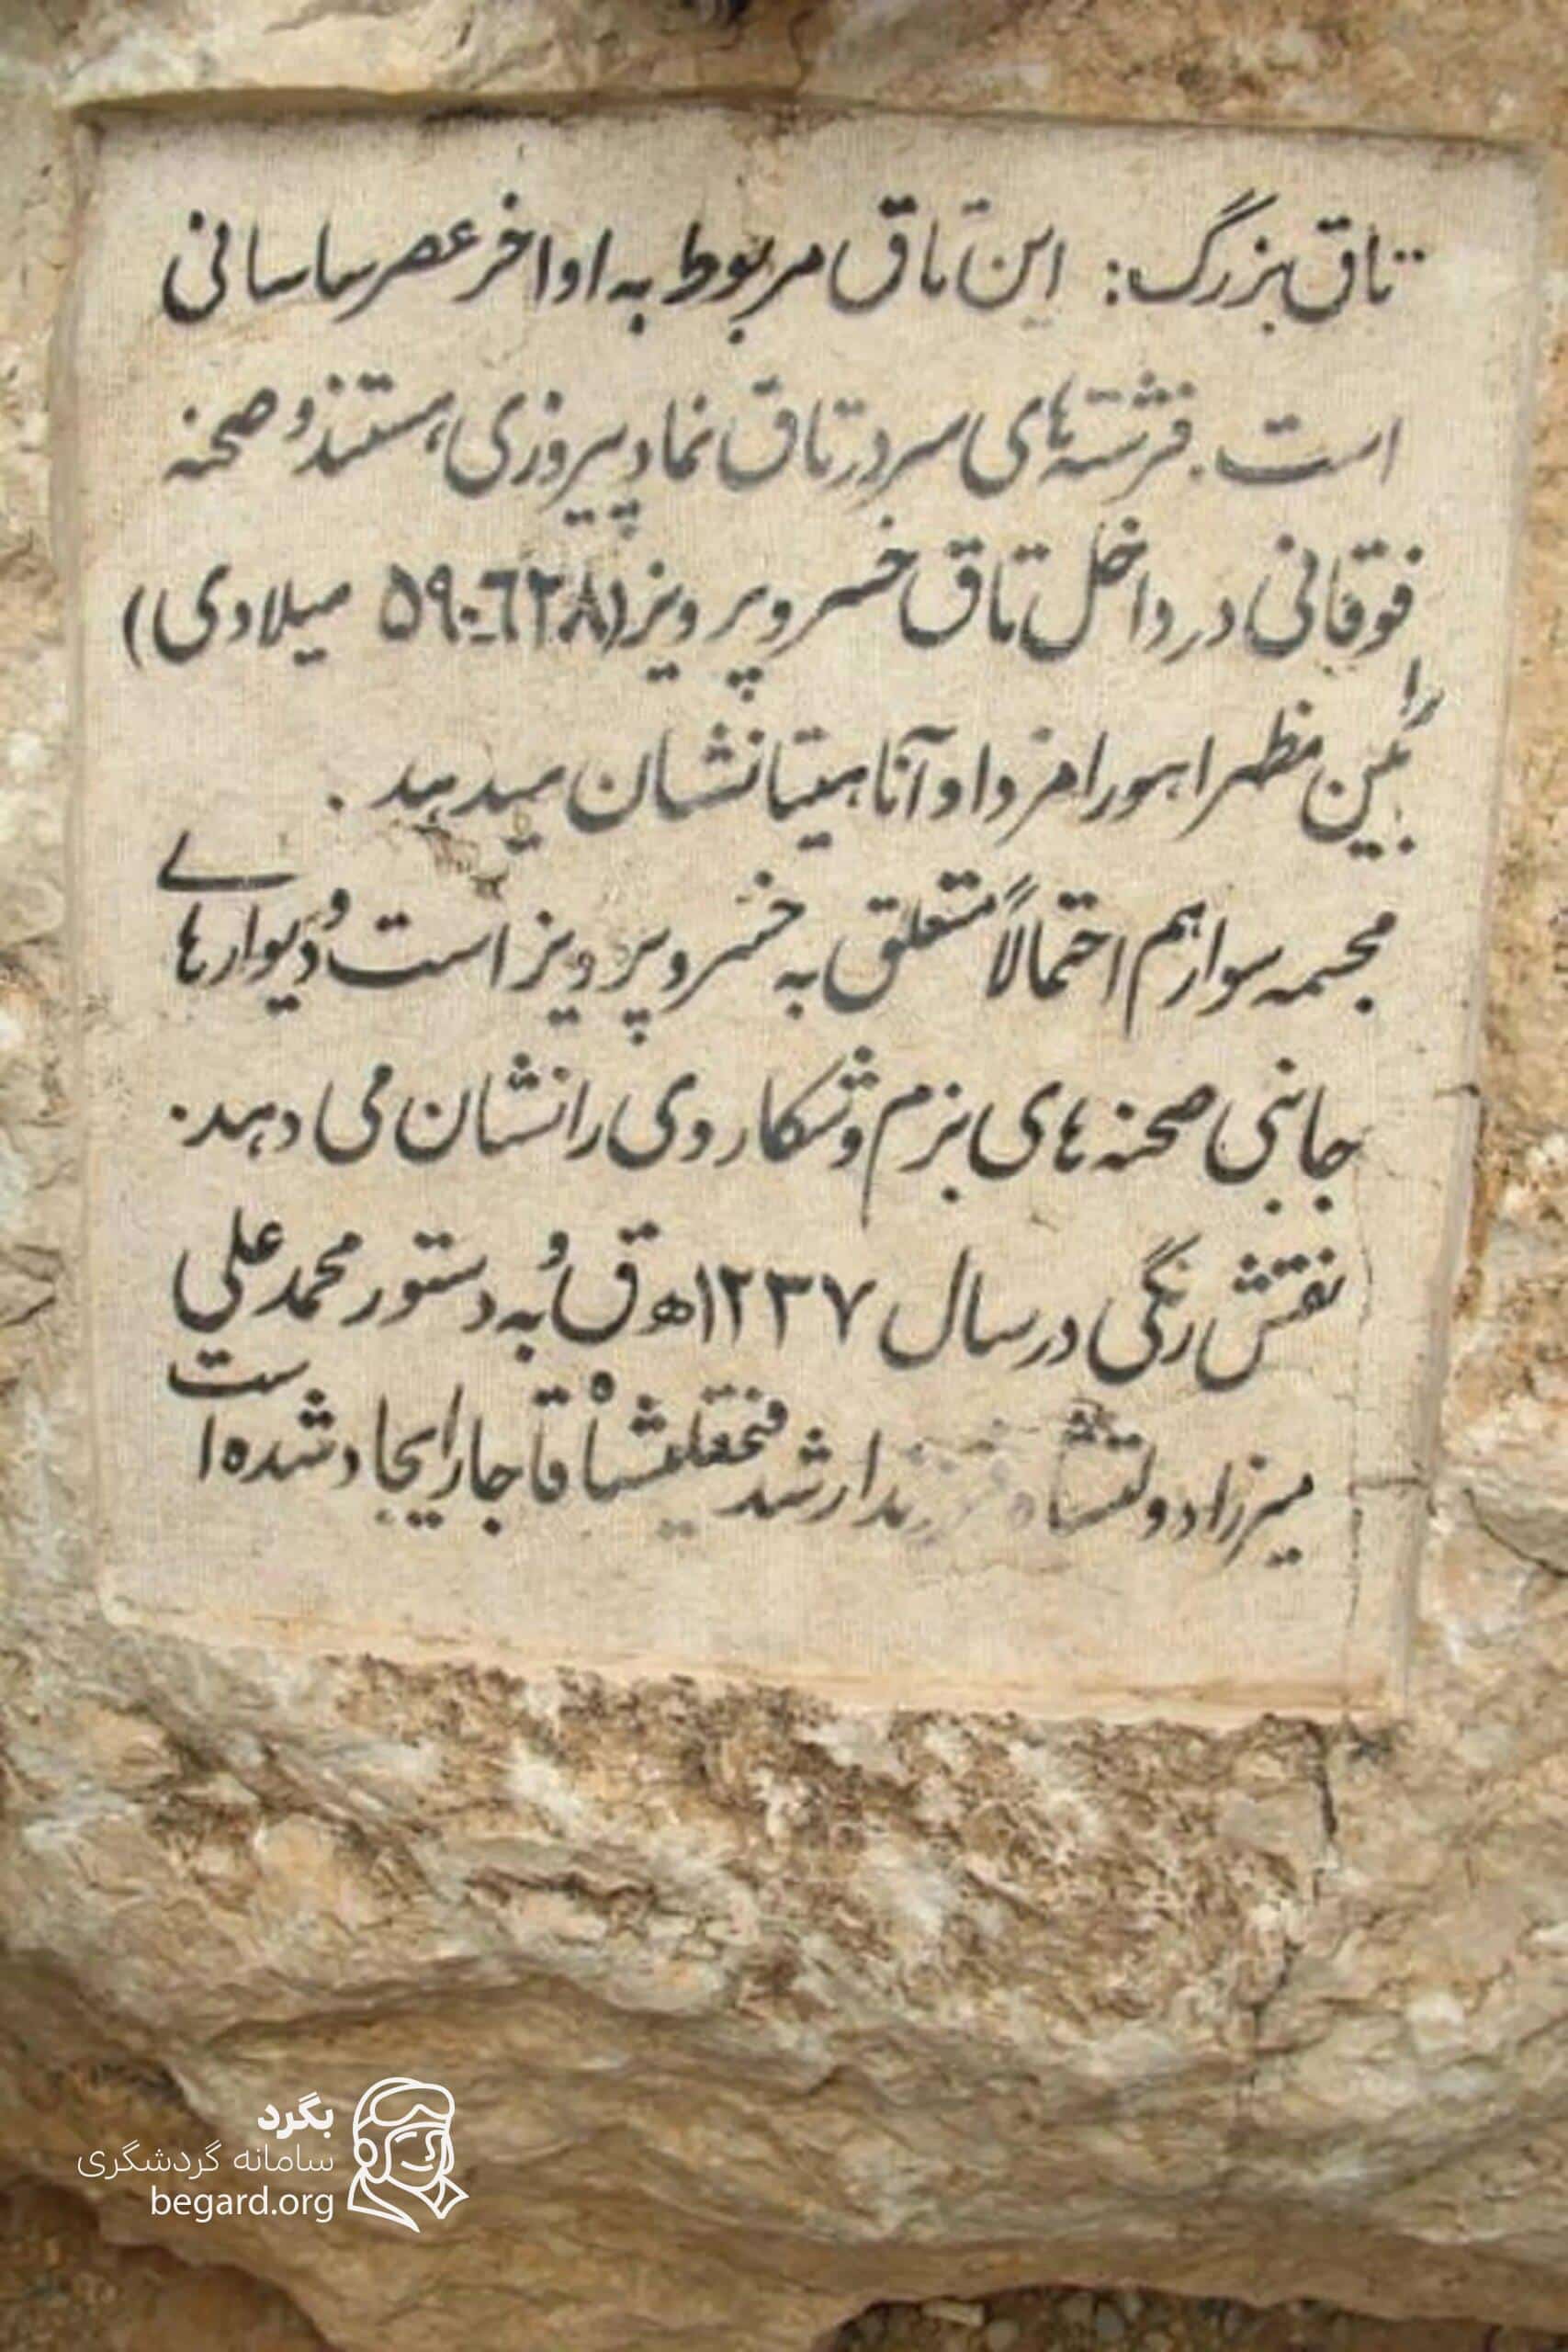 تاق بزرگ: این تاق مربوط به اواخر عصر ساسانی
است. فرشته های سردر تاق نماد پیروزی هستند و صحنه
فوقانی در داخل تاق خسرو پرویز (۵۹۰-۶۲۸ میلادی)
را بین مظهر اهورامزدا و آناهیتا نشان میدهد.
مجسمه سوار هم احتمالاً متعلق به خسرو پرویز است و دیوارهای
جانبی صحنه های بزم و شکار وی را نشان می دهد.
نقش رنگی در سال ۱۲۳۷ه ق به دستور محمد علی
میرزا دولتشاه ارشد فتحعلیشاه قاجار ایجاد شده است
بگرد
سامانه گردشگری
begard.org